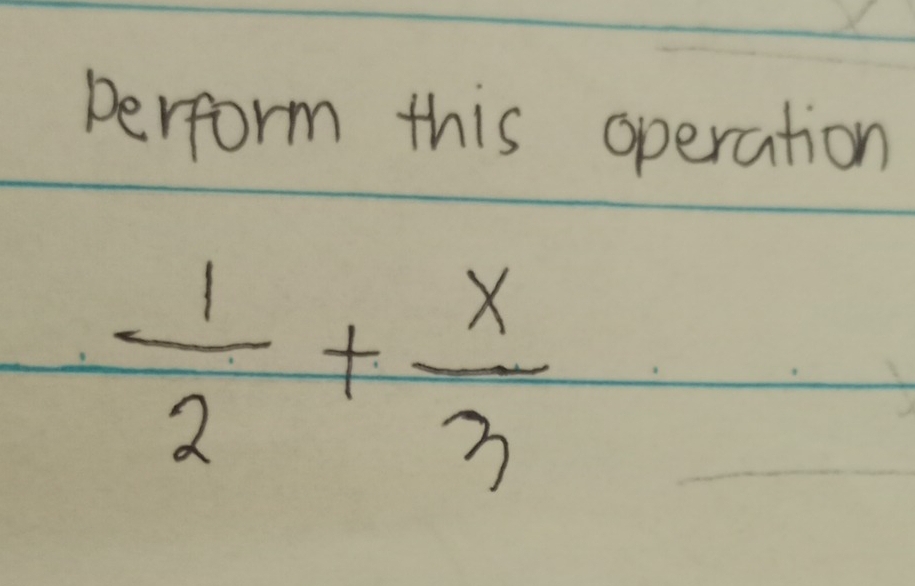 Perform this operation
1/2 + x/3